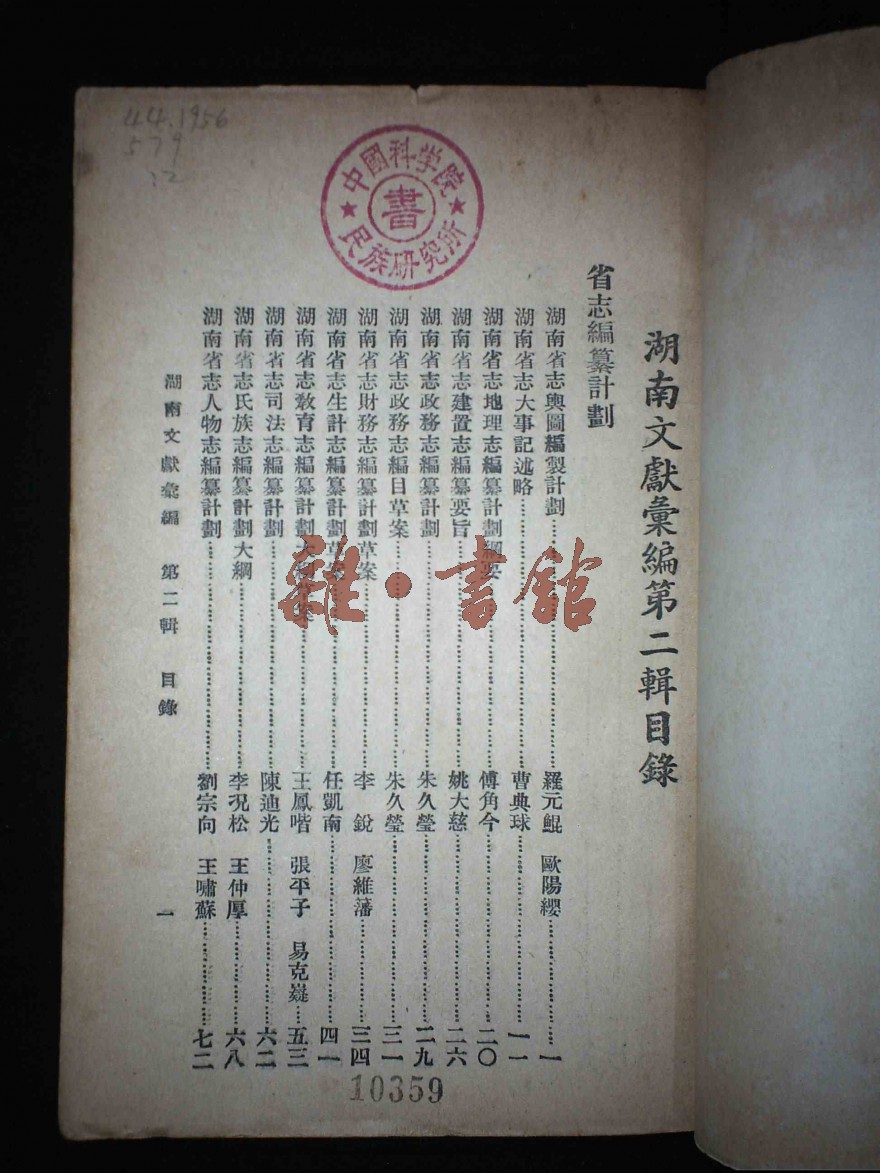 湖南文獻彙編第二輯目錄
省志編纂計劃
湖南省志輿圖編製計劃 羅元鯤 歐陽纓 一
湖南省志大事記述略 曹典球 一一
湖南省志地理志編纂計劃綱要 傅角今 二〇
湖南省志建置志編纂要旨 姚大慈 二六
湖南省志政務志編纂計劃 朱久瑩 二九
湖南省志政務志編目草案 朱久瑩 三一
湖南省志財務志編纂計劃草案 李銳 廖維藩 三四
湖南省志生計志編纂計劃草案 任凱南 四一
湖南省志教育志編纂計劃大綱草案 王鳳喈 張平子 易克嶷 五三
湖南省志司法志編纂計劃 陳迪光 六二
湖南省志民族志編纂計劃大綱 李況松 王仲厚 六八
湖南省志人物志編纂計劃 劉宗向 王嘯蘇 七二
湖南文獻彙編 第二輯 目錄 一
中國科学院
書
民族研究所
44.1956
579
:2
雜·書館
10359